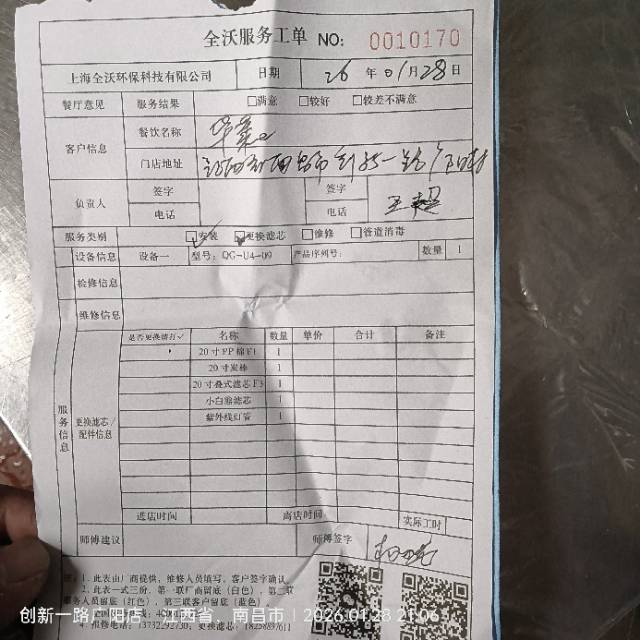 全沃服务工单 NO: 0010170
上海全沃环保科技有限公司 日期 26 年 01 月 28 日
餐厅意见 服务结果 □满意 □较好 □较差不满意
客户信息 餐饮名称
门店地址
负责人 签字 签字 王
电话 电话
服务类别 □安装 □更换滤芯 □维修 □管道消毒
设备信息 设备一 型号: QG-U4-09 产品序列号: 数量 1
检修信息
维修信息
服务信息 更换滤芯/配件信息 是否更换请打✓ 名称 数量 单价 合计 备注
20寸PP棉F1 1
20寸炭棒 1
20寸叠式滤芯F3 1
小白龍滤芯 1
紫外线灯管 1
进店时间 离店时间 实际工时
师傅建议 师傅签字
1、此表由厂商提供，维修人员填写，客户签字确认。
2、此表一式三份，第一联厂商留底（白色），第二联
服务人员留底（红色），第三联客户留底（蓝色）
4、维修电话: 13732292730，更换滤芯: 18258897611
创新一路广阳店 江西省 南昌市 2026.01.28 21:06